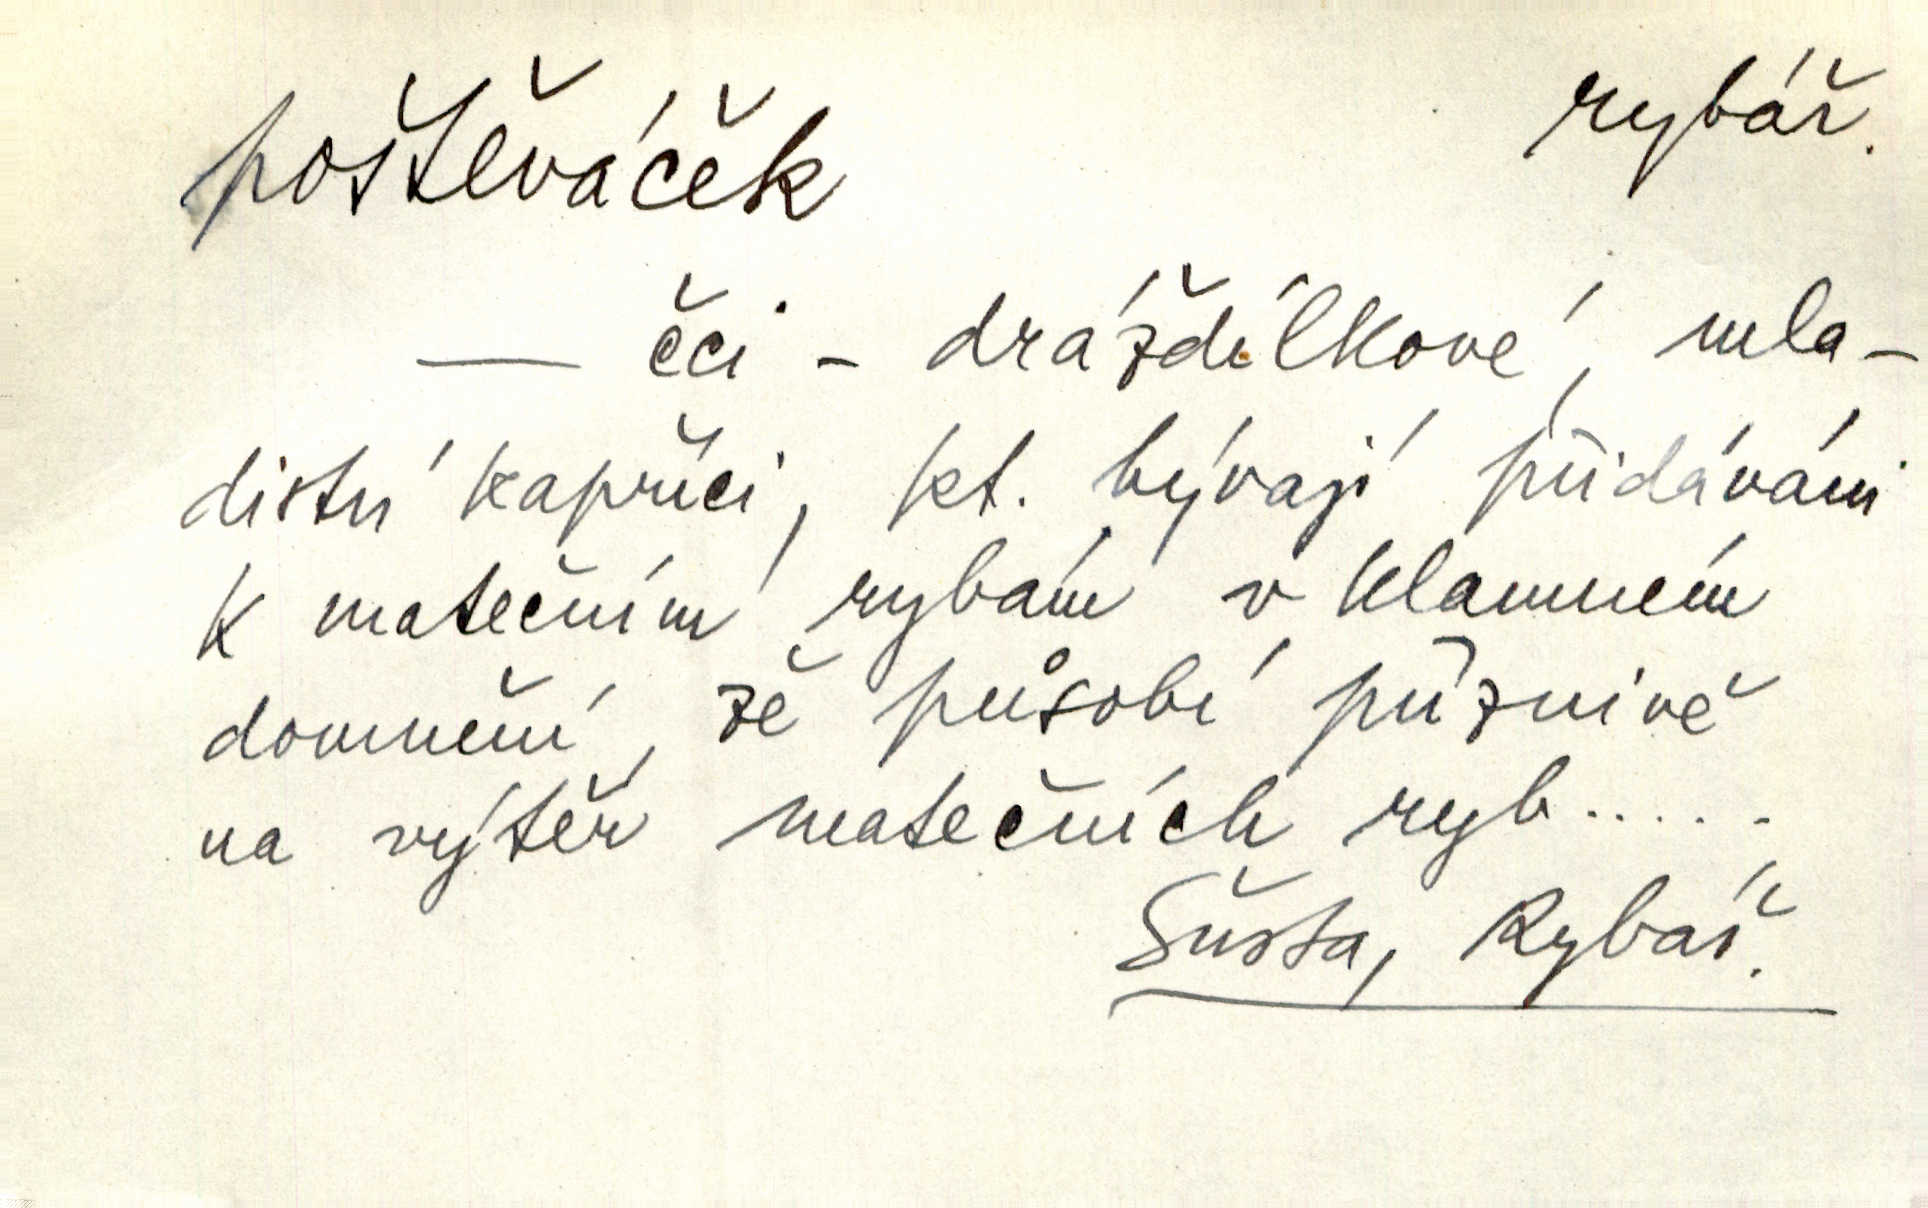 poštěváček rybář.
— čci - dráždílkové, mla-
diství kapříci, kt. bývají přidáváni
k matečním rybám v klamném
domnění, že působí příznivě
na výtěr matečních ryb.....
Šusta, Rybář.